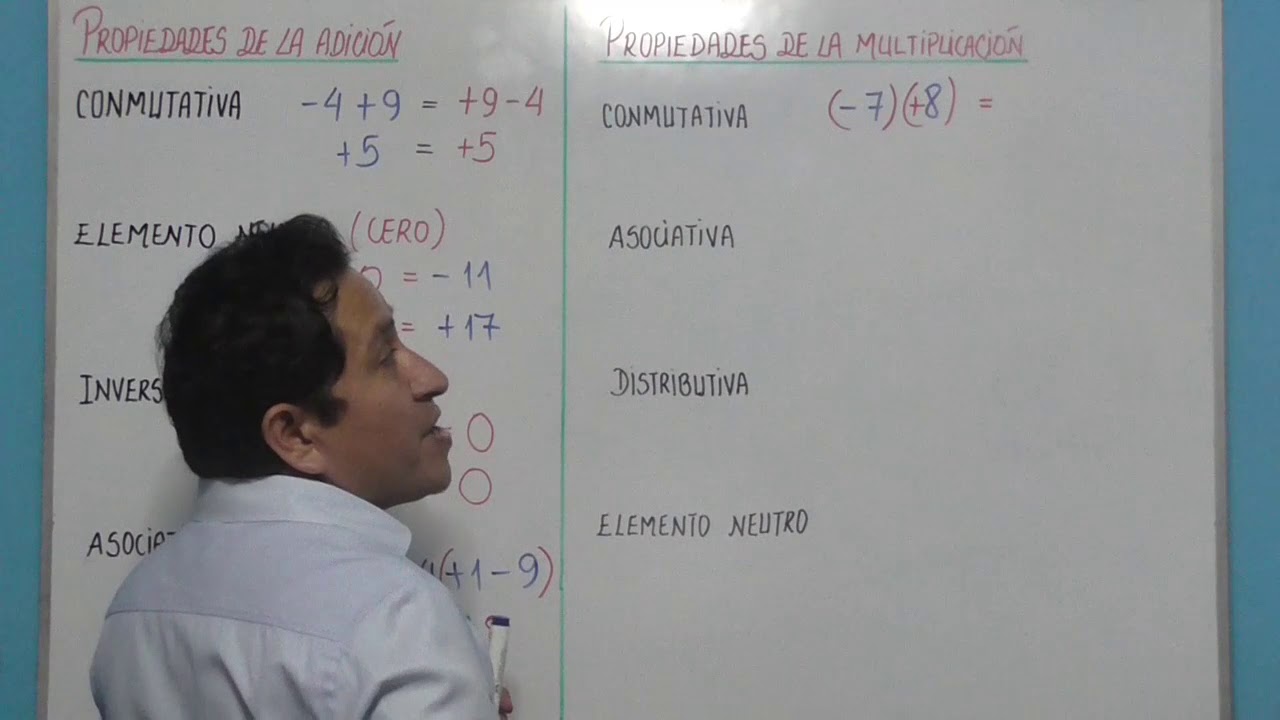 PROPIEDADES DE LA ADICIÓN
CONMUTATIVA -4 +9 = +9 -4
+5 = +5
ELEMENTO (CERO)
0 = - 11
= +17
0
0
+1 - 9)
PROPIEDADES DE LA MULTIPLICACIÓN
CONMUTATIVA (-7)(+8) =
ASOCIATIVA
DISTRIBUTIVA
ELEMENTO NEUTRO